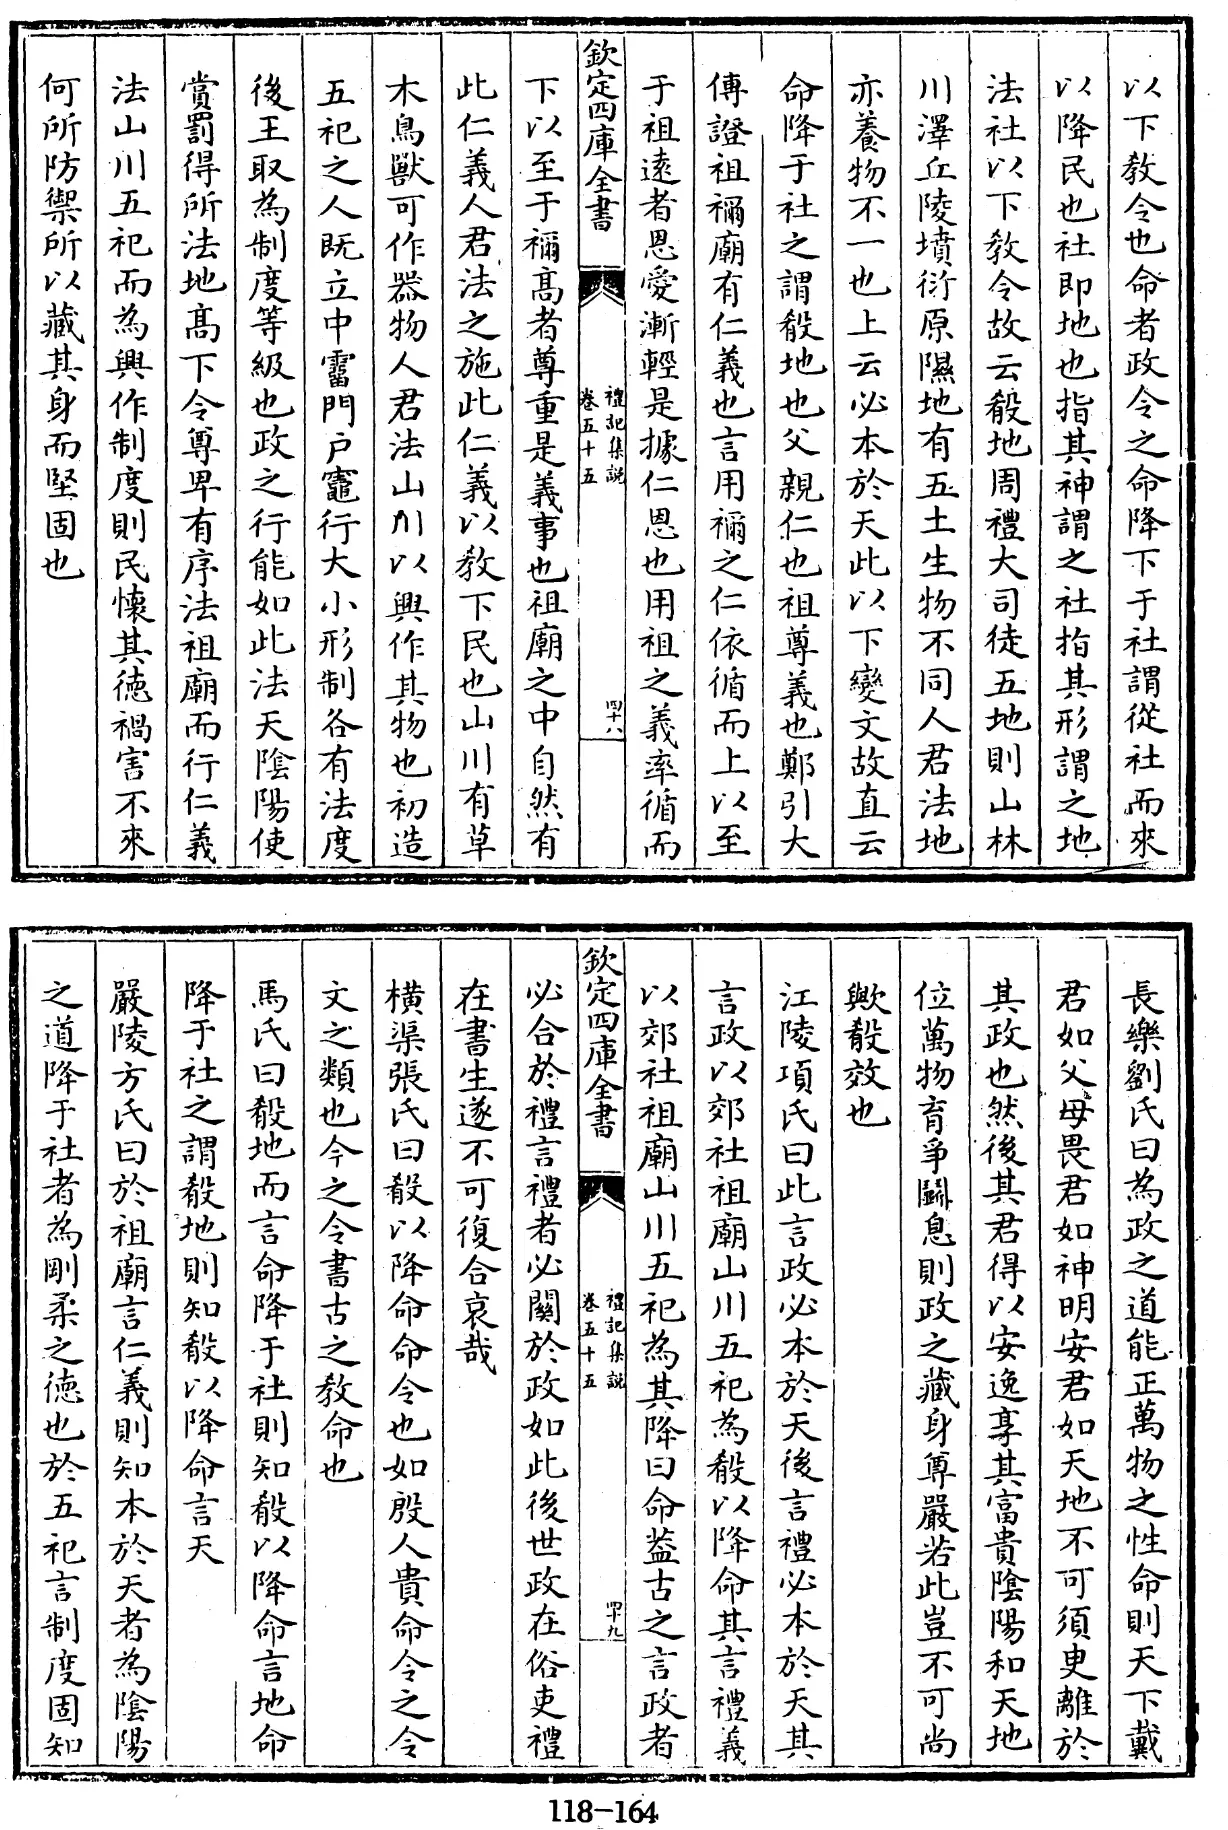 以下教令也命者政令之命降下于社謂從社而來
以降民也社即地也指其神謂之社指其形謂之地
法社以下教令故云殽地周禮大司徒五地則山林
川澤丘陵墳衍原隰地有五土生物不同人君法地
亦養物不一也上云必本於天此以下變文故直云
命降于社之謂殽地也父親仁也祖尊義也鄭引大
傳證祖禰廟有仁義也言用禰之仁依循而上以至
于祖遠者恩愛漸輕是據仁恩也用祖之義率循而
欽定四庫全書
禮記集說
卷五十五
四十八
下以至于禰高者尊重是義事也祖廟之中自然有
此仁義人君法之施此仁義以教下民也山川有草
木鳥獸可作器物人君法山川以興作其物也初造
五祀之人既立中霤門戶竈行大小形制各有法度
後王取為制度等級也政之行能如此法天陰陽使
賞罰得所法地髙下令尊卑有序法祖廟而行仁義
法山川五祀而為興作制度則民懷其徳禍害不來
何所防禦所以藏其身而堅固也
長樂劉氏曰為政之道能正萬物之性命則天下戴
君如父母畏君如神明安君如天地不可須臾離於
其政也然後其君得以安逸享其富貴陰陽和天地
位萬物育爭鬭息則政之藏身尊嚴若此豈不可尚
歟殽效也
江陵項氏曰此言政必本於天後言禮必本於天其
言政以郊社祖廟山川五祀為殽以降命其言禮義
以郊社祖廟山川五祀為其降曰命葢古之言政者
欽定四庫全書
禮記集說
卷五十五
四十九
必合於禮言禮者必關於政如此後世政在俗吏禮
在書生遂不可復合哀哉
橫渠張氏曰殽以降命命令也如殷人貴命令之令
文之類也今之令書古之教命也
馬氏曰殽地而言命降于社則知殽以降命言地命
降于社之謂殽地則知殽以降命言天
嚴陵方氏曰於祖廟言仁義則知本於天者為陰陽
之道降于社者為剛柔之徳也於五祀言制度固知
118-164